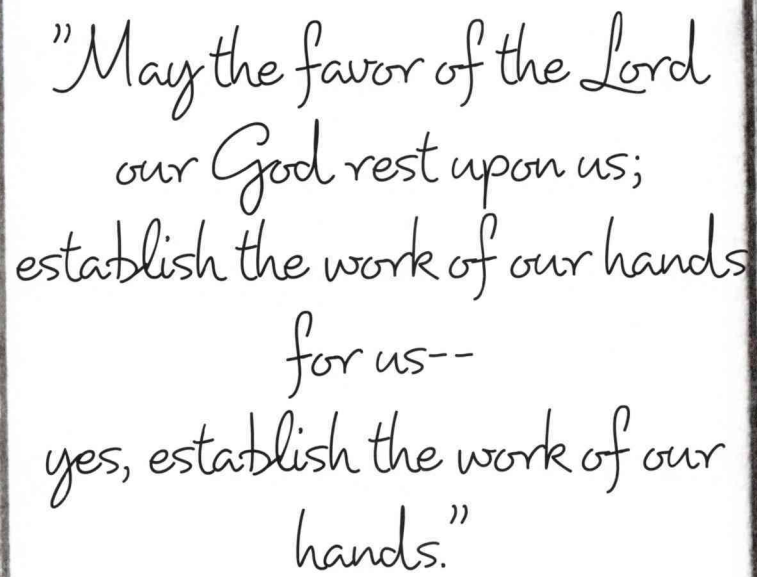 "May the favor of the Lord
our God rest upon us;
establish the work of our hands
for us--
yes, establish the work of our
hands."